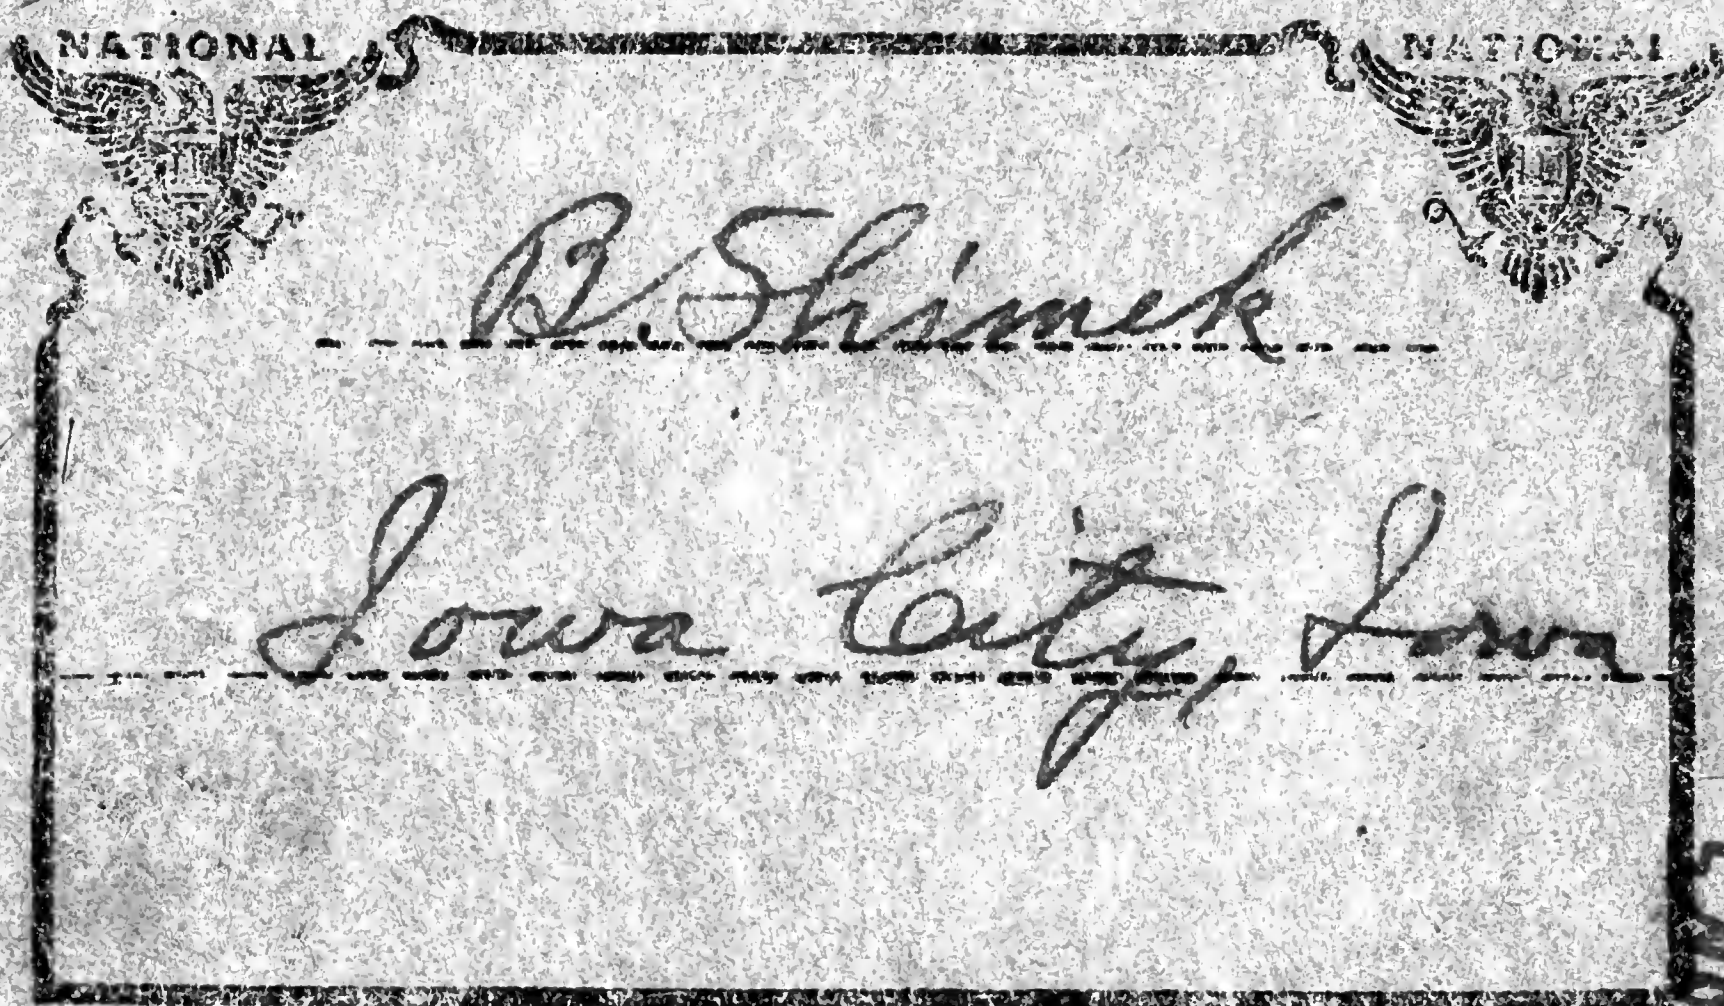 NATIONAL NATIONAL
B. Shimek
Iowa City, Iowa